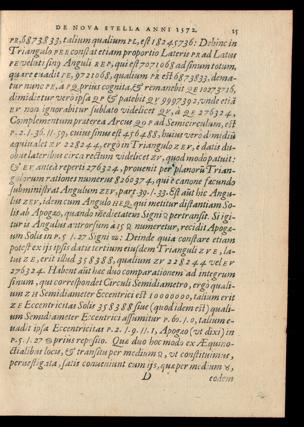 DE NOVA STELLA ANNI 1572. 15
PE, 6873833, talium qualium PL, est 18245736: Dehinc in
Triangulo PRE constat etiam proportio Lateris PR ad Latus
PE veluti sinꝰ Anguli REP, qui est 7071068 ad sinum totum,
quare euadit PE, 9721068, qualium PR est 6873833, dema-
tur nunc PE, a PQ prius cognita, & remanebit QE
dimidietur vero ipsa QP & patebit QV 9997392, unde etiā
EV non ignorabitur sublato videlicet QE, a QV 276324.
Complementum praterea Arcus QOP ad Semicirculum, est
p. 2. I. 36. II. 59, cuius sinus est 456488, huius vero dimidiū
aequiualet ZV 228244, ergo in Triangulo ZEV, è datis du-
obus lateribus circa rectum videlicet ZV, quod modo patuit:
& EV antea reperti 276324, prouenit per planorū Trian-
gulorum rationes numerus 8260374, qui è canone faecundo
subministrat Angulum ZEV, part. 39. I. 33. Est aūt hic Angu-
lus ZEV, idem cum Angulo HEQ, qui metitur distantiam So-
lis ab Apogeo, quando medietatem Signi ♉ pertransit. Si igi-
tur is Angulus antrorsum a 15 numeretur, recidit Apogæ-
um Solis in p. 5 I. 27 Signi ♋: Deinde quia constare etiam
potest ex ijs ipsis datis tertium eiusdem Trianguli ZVE, la-
tus ZE, erit illud 358388, qualium ZV 228244 vel EV
276324. Habent aūt hæc duo comparationem ad integrum
sinum, qui correspondet Circuli Semidiametro, ergo quali-
um ZH Semidiameter Eccentrici est 10000000, talium erit
ZE Eccentricitas Solis 358388 siue (quod idem est) quali-
um Semidiameter Eccentrici assumitur p. 60. I. 0, talium e-
uadit ipsa Eccentricitas p. 2. I. 9. II. 1, Apogæo (vt dixi) in
p. 5. I. 27 ♋ prius reposito. Quæ duo hoc modo ex Æquino-
ctialibus locis, & transitu per medium, vt constituimus,
peruestigata, satis conueniunt cum ijs, quæ per medium ♉,
D eodem